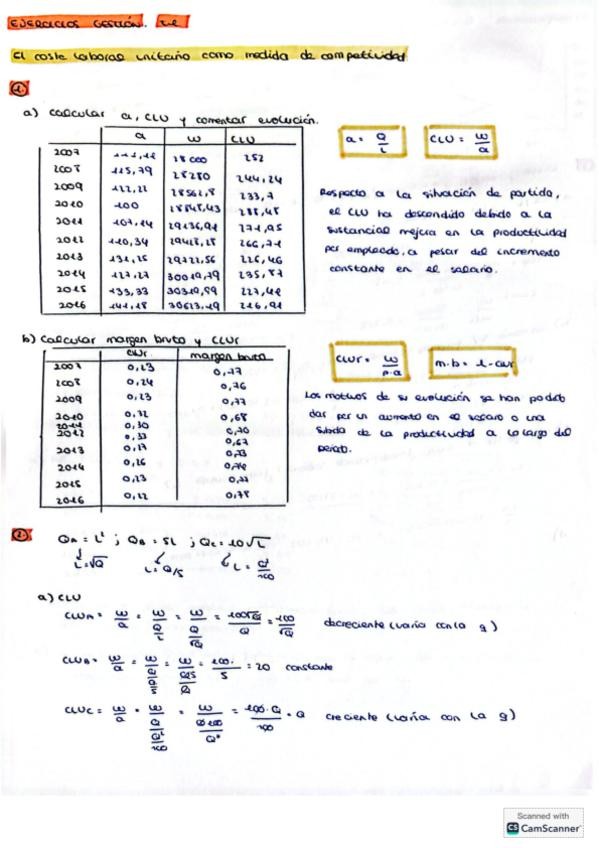 EJERCICIOS GESTIÓN. T.2
El coste laboral unitario como medida de competividad
1.
a) calcular a, CLU y comentar evolución.
a w CLU
a = Q/L
CLU = w/a
2007 28000 252
2008 115,79 28280 244,24
2009 122,21 28562,8 233,7
2010 100 28848,43 288,48
2011 107,14 29136,91 271,95
2012 110,34 29428,28 266,71
2013 131,25 29722,56 226,46
2014 127,27 30019,79 235,87
2015 133,33 30319,99 227,42
2016 141,18 30623,19 216,91
Respecto a la situación de partida,
el CLU ha descendido debido a la
sustancial mejora en la productividad
por empleado, a pesar del incremento
constante en el salario.
b) Calcular margen bruto y CLUr
CLUr. margen bruto
CLUr = w/p·a
m.b = 1 - CLUr
2007 0,23 0,77
2008 0,24 0,76
2009 0,23 0,77
2010 0,32 0,68
2011 0,30 0,70
2012 0,33 0,67
2013 0,27 0,73
2014 0,26 0,74
2015 0,23 0,77
2016 0,22 0,78
Los motivos de su evolución se han podido
dar por un aumento en el salario o una
subida de la productividad a lo largo del
periodo.
2.
QA = L² ; QB = 5L ; QC = 10√L
L = √Q L = Q/5 L = Q²/100
a) CLU
CLUA = w/a = = = 100√Q/Q = 100/√Q decreciente (varía con la q)
CLUB = w/a = = = 100/5 = 20 constante
CLUC = w/a = = = 100·Q/100 = Q creciente (varía con la q)
Scanned with
CS CamScanner